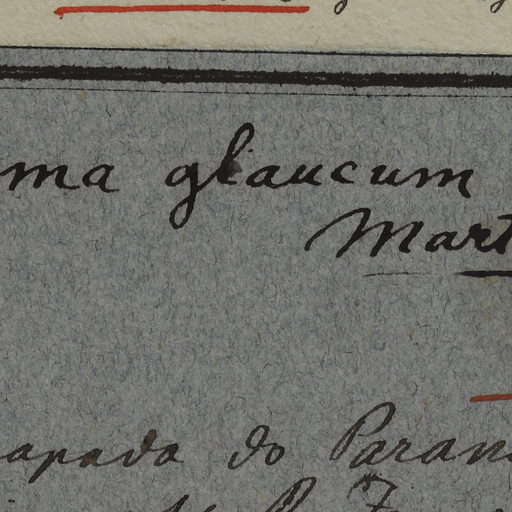 ma glaucum
Mart
apada do Paran